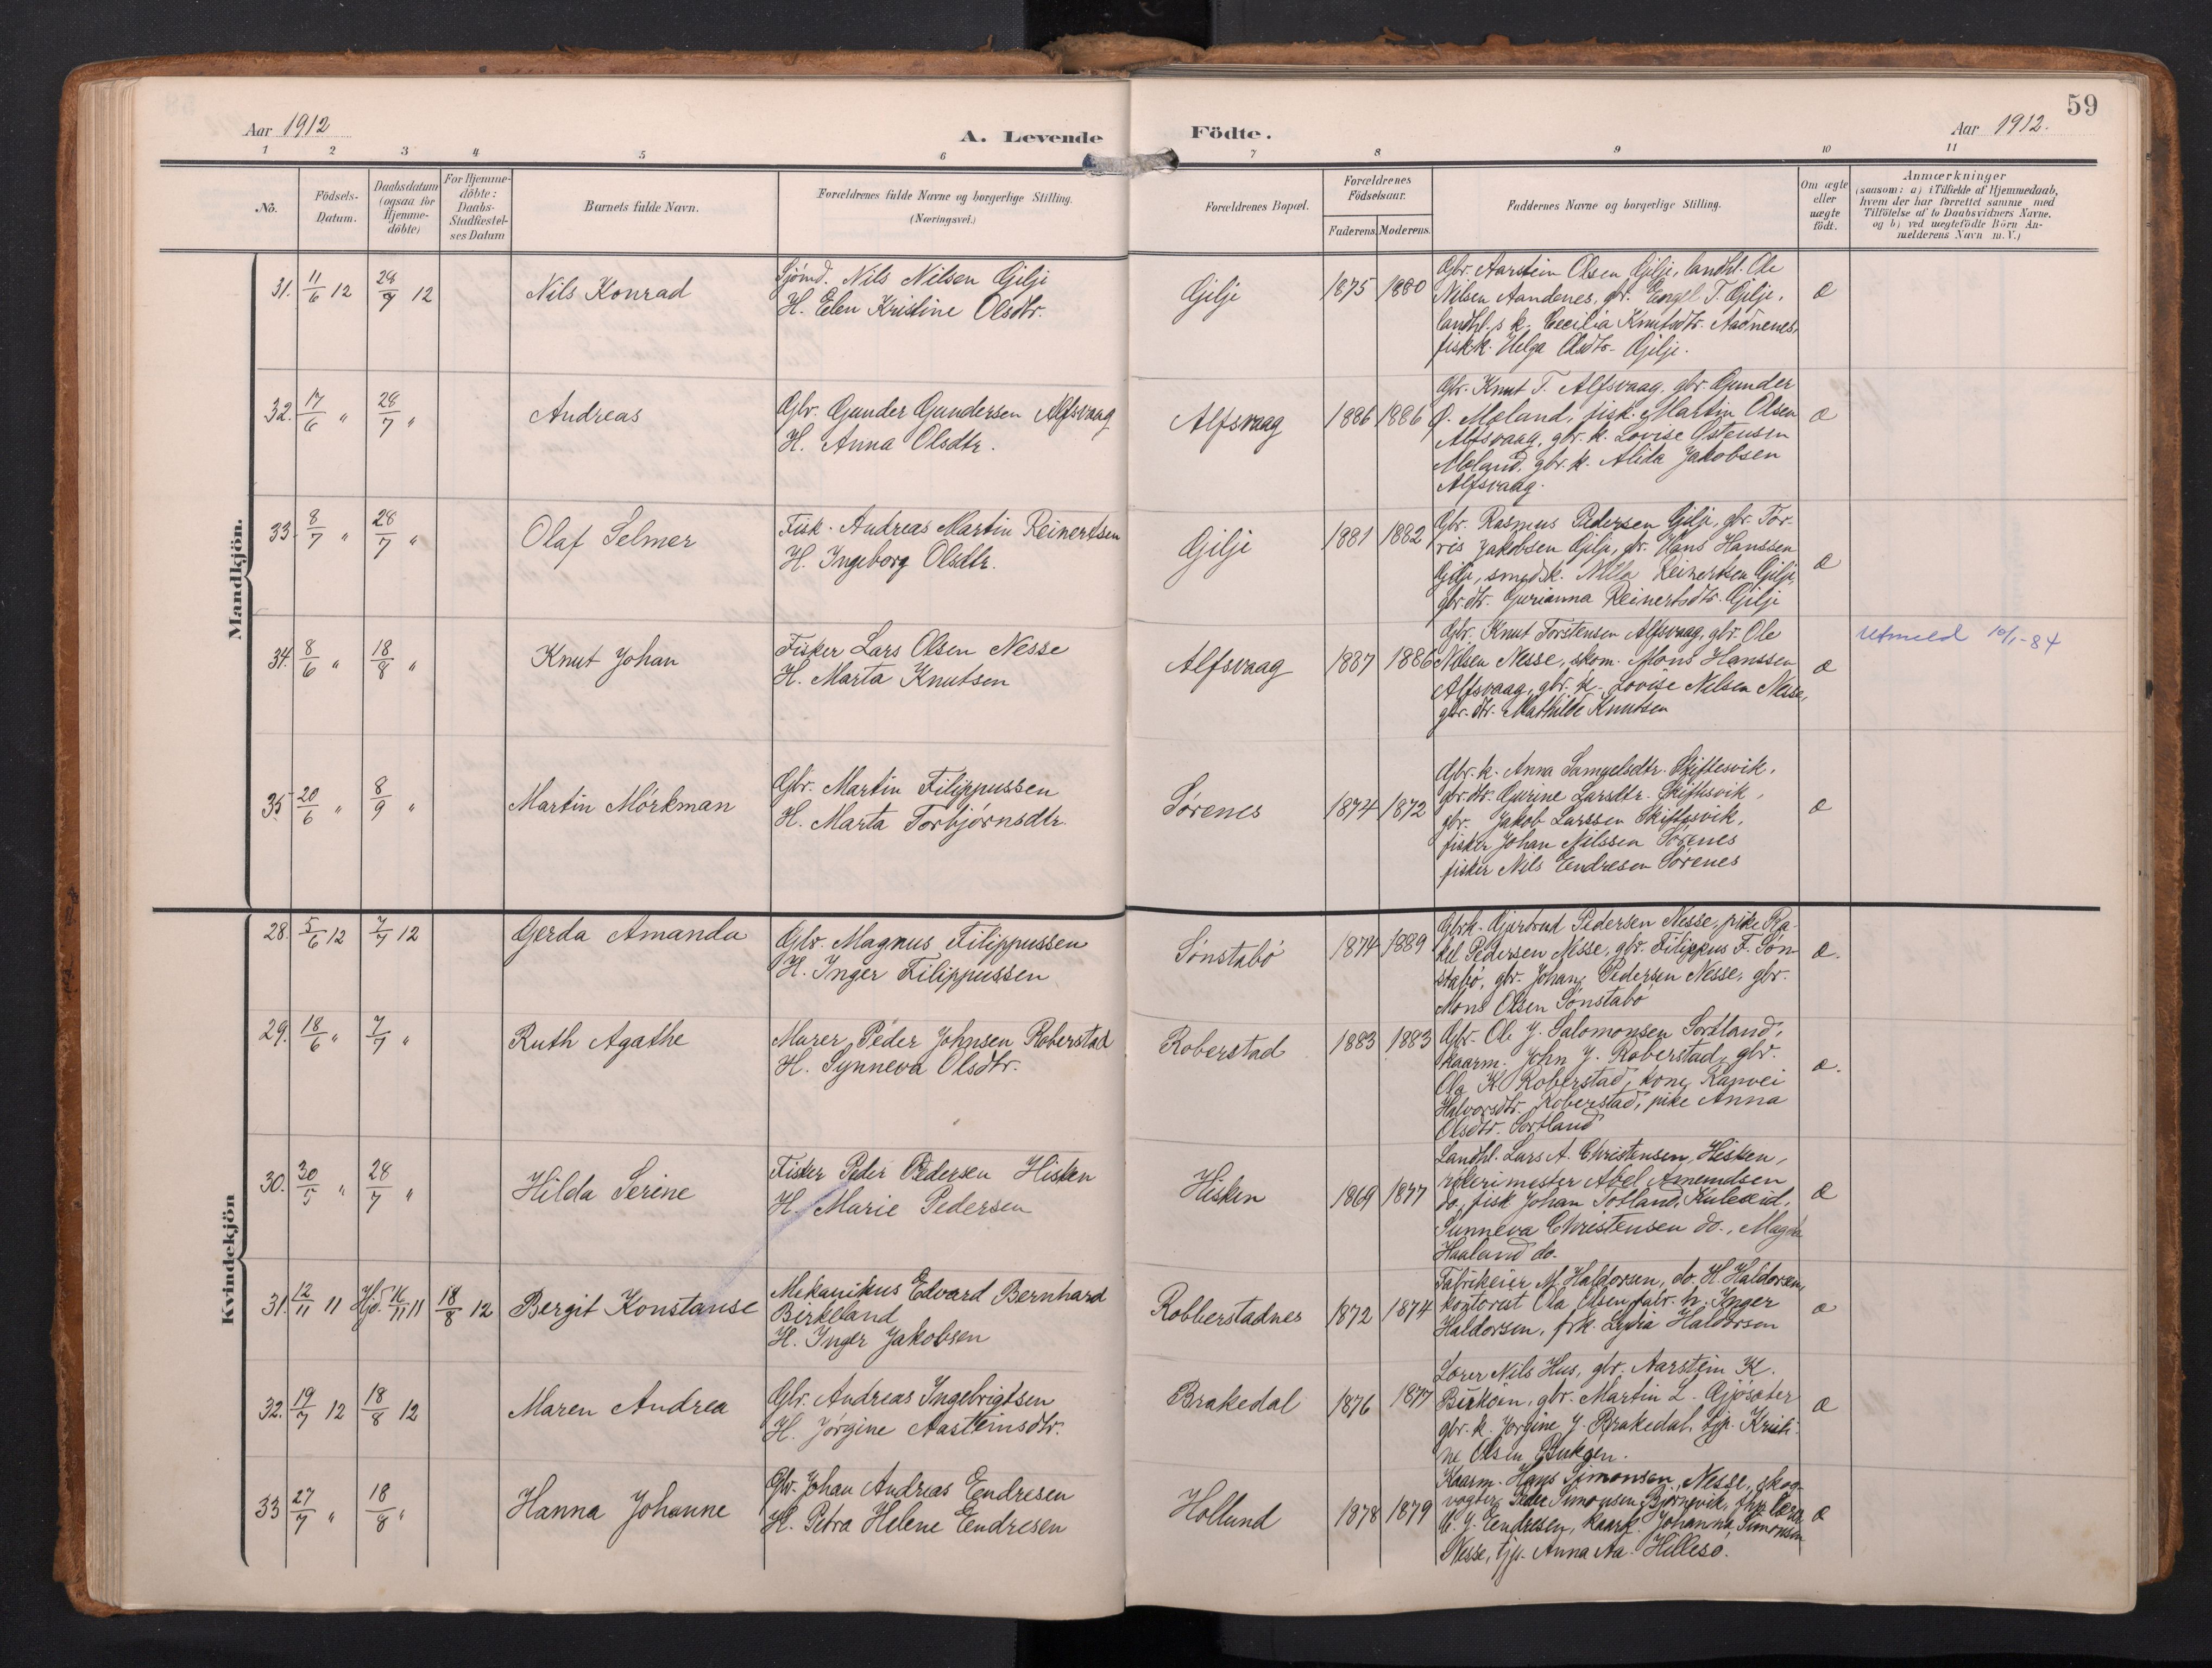 59
Aar 1912
A. Levende Födte.
Aar 1912.
1 2 3 4 5 6 7 8 9 10 11
No.
Födsels-
Datum.
Daabsdatum
(ogsaa for
Hjemme-
döbte)
For Hjemme-
döbte:
Daabs-
Stadfæstel-
ses Datum
Barnets fulde Navn.
Forældrenes fulde Navne og borgerlige Stilling.
(Næringsvei.)
Forældrenes Bopæl.
Forældrenes
Födselsaar.
Faderens. Moderens.
Faddernes Navne og borgerlige Stilling.
Om ægte
eller
uægte
födt.
Anmærkninger
(saasom: a) i Tilfælde af Hjemmedaab,
hvem der har forrettet samme med
Tilföielse af to Daabsvidners Navne.
og b) ved uægtefödte Börn An-
melderens Navn m. V.)
Mandkjön.
31. 11/6 12 28/7 12
Nils Konrad
Sjømd. Nils Nilsen Gilje
H. Elen Kristine Olsdtr.
Gilje
1875 1880
Gbr. Aarstein Olsen Gilje, landhl. Ole
Nilsen Aandenes, gbr. Engel T. Gilje,
landhl.s k. Cecilia Knutsdtr. Aadnenes,
fisk.k. Helga Olsdtr. Gilje.
æ
32. 17/6 " 28/7 "
Andreas
Gbr. Gunder Gundersen Alfsvaag
H. Anna Olsdtr.
Alfsvaag
1886 1886
Gbr. Knut T. Alfsvaag, gbr. Gunder
Ø. Meland, fisk. Martin Olsen
Alfsvaag, gbr. k. Lovise Østensen
Meland, gbr. k. Alida Jakobsen
Alfsvaag.
æ
33. 8/7 " 28/7 "
Olaf Selmer
Fisk. Andreas Martin Reinertsen
H. Ingeborg Olsdtr.
Gilje
1881 1882
Gbr. Rasmus Pedersen Gilje, gbr. Tor-
ris Jakobsen Gilje, gbr. Hans Hanssen
Gilje, smeds k. Nilla Reinertsen Gilje,
gbr. dtr. Gurianna Reinertsdtr. Gilje
æ
34. 8/6 " 18/8 "
Knut Johan
Fisker Lars Olsen Nesse
H. Marta Knutsen
Alfsvaag
1887 1886
Gbr. Knut Torstensen Alfsvaag, gbr. Ole
Nilsen Nesse, skom. Mons Hanssen
Alfsvaag, gbr. k. Lovise Nilsen Nesse,
gbr. dtr. Mathilde Knutsen
æ
Utmeld 10/1-84
35 20/6 " 8/9 "
Martin Mörkman
Gbr. Martin Filippussen
H. Marta Torbjørnsdtr.
Sørenes
1874 1872
Gbr. k. Anna Samuelsdtr. Skiftesvik,
gbr. dtr. Gurine Larsdtr. Skiftesvik,
gbr. Jakob Larssen Skiftesvik,
fisker Johan Nilssen Sørenes
fisker Nils Endresen Sørenes
æ
Kvindekjön
28. 5/6 12 7/7 12
Gerda Amanda
Gbr. Magnus Filippussen
H. Inger Filippussen
Sønstabö
1874 1889
Gbrk. Gjærtrud Pedersen Nesse, pike Ra-
kel Pedersen Nesse, gbr. Filippus F. Søn-
stabö, gbr. Johan Pedersen Nesse, gbr.
Mons Olsen Sønstabö
æ.
29. 18/6 " 7/7 "
Ruth Agathe
Murer Peder Johnsen Roberstad
H. Synneva Olsdtr.
Roberstad
1883 1883
Gbr. Ole J. Salomonsen Sortland,
kaarm. John J. Roberstad, gbr.
Ola K. Roberstad, kone Ranvei
Halvorsdtr. Roberstad, pike Anna
Olsdtr. Sortland
æ.
30. 30/5 " 28/7 "
Hilda Serine
Fisker Peder Pedersen Hisken
H. Marie Pedersen
Hisken
1869 1877
Landhl. Lars A. Christensen, Hisken,
rökerimester Abel Amundsen
do, fisk Johan Totland, Kuleseid,
Sunneva Christensen do., Magda
Haaland do.
æ
31. 12/11 11 Hjd. 16/11 11 18/8 12
Bergit Konstanse
Mekanikus Edvard Bernhard
Birkeland
H. Inger Jakobsen
Robberstadnes
1872 1874
Fabrikeier M. Haldorsen, do. H. Haldorsen,
kontorist Ola Olsen, fabr. h. Inger
Haldorsen, frk. Lydia Haldorsen
æ
32. 19/7 12 18/8 12
Maren Andrea
Gbr. Andreas Ingebrigtsen
H. Jørgine Aasteinsdtr.
Brakedal
1876 1877
Lærer Nils Hus, gbr. Aarstein K.
gbr. Martin L. Gjøsæter
gbr. k. Jørgine J. Brakedal, tjp. Kristi-
ne Olsen
æ
33 27/7 " 18/8 "
Hanna Johanne
Gbr. Johan Andreas Endresen
H. Petra Helene Endresen
Hollund
1878 1879
Kaarm. Hans Simonsen, Nesse, skog-
vogter Peder Simonsen Bjørnevik,
Endresen, kaark. Johanna Simonsen
Nesse, tjp. Anna Aa. Hillesø.
æ